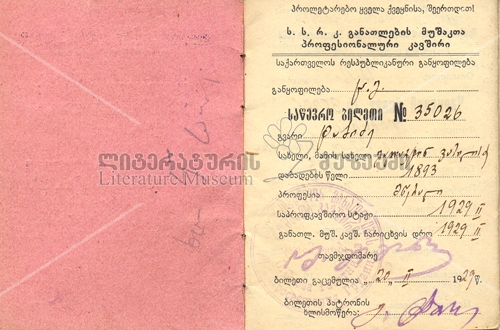 პროლეტარებო ყველა ქვეყნისა, შეერთდით!
ს. ს. რ. კ. განათლების მუშაკთა
პროფესიონალური კავშირი
საქართველოს რესპუბლიკანური განყოფილება
განყოფილება
საწევრო ბილეთი № 35026
გვარი
ლიტერატურის მუზეუმი
Literature Museum
სახელი, მამის სახელი
დაბადების წელი 1893
პროფესია მწერალი
საპროფკავშირო სტაჟი 1929 II
განათლ. მუშ. კავშ. ჩარიცხვის დრო 1929 II
თავმჯდომარე
ბილეთი გაცემულია „20„ II 1929 წ.
ბილეთის პატრონის
ხელისმოწერა: